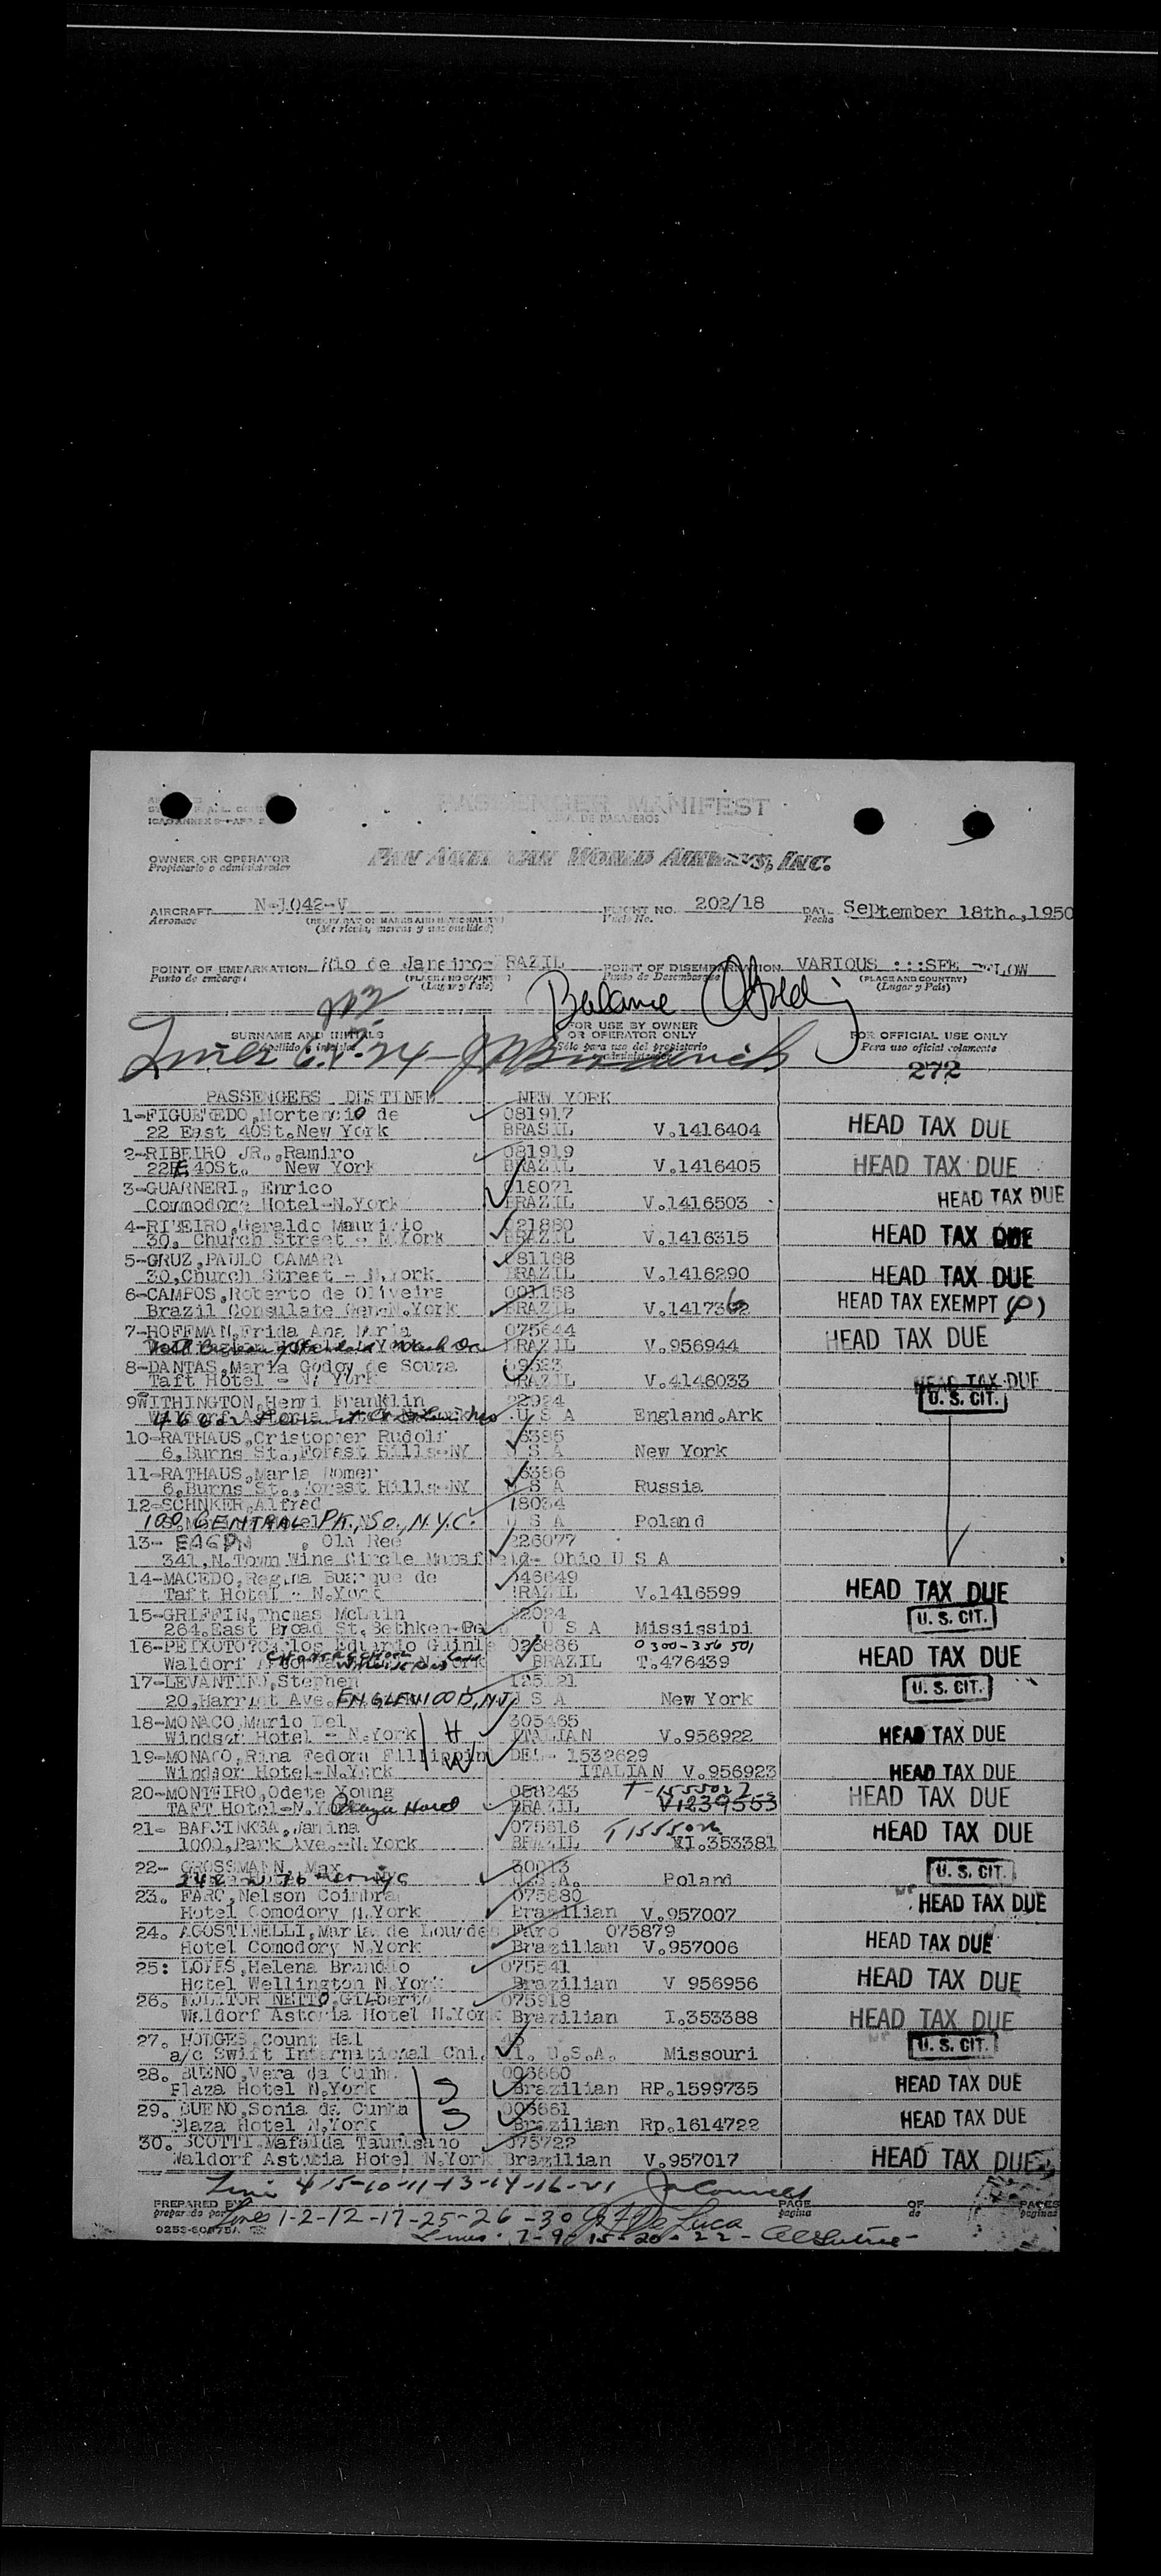 PASSENGER MANIFEST
LISTA DE PASAJEROS
OWNER OR OPERATOR
Propietario o administrador
PAN AMERICAN WORLD AIRWAYS, INC.
AIRCRAFT N-1042-V FLIGHT NO. 202/18 DATE September 18th.,1950
Aeronave (REGISTRATION MARKS AND NATIONALITY) Vuelo No. Fecha
(Matricula, marcas y nacionalidad)
POINT OF EMBARKATION Rio de Janeiro- BRAZIL POINT OF DISEMBARKATION VARIOUS :::SEE BELOW
Punto de embarque (PLACE AND COUNTRY) Punto de Desembarque (PLACE AND COUNTRY)
(Lugar y Pais) (Lugar y Pais)
Balance
SURNAME AND INITIALS FOR USE BY OWNER OR OPERATOR ONLY FOR OFFICIAL USE ONLY
Apellido e iniciales Sólo para uso del propietario o administrador Para uso oficial solamente
272
PASSENGERS DESTINED NEW YORK
1-FIGUEREDO,Hortencio de 081917
22 East 40St.New York BRASIL V.1416404 HEAD TAX DUE
2-RIBEIRO JR.,Ramiro 081919
22E 40St. New York BRAZIL V.1416405 HEAD TAX DUE
3-GUARNERI, Enrico 018071
Commodore Hotel-N.York BRAZIL V.1416503 HEAD TAX DUE
4-RIBEIRO,Geraldo Mauricio 021880
30, Church Street - N.York BRAZIL V.1416315 HEAD TAX DUE
5-CRUZ,PAULO CAMARA 081188
30,Church Street - N.York BRAZIL V.1416290 HEAD TAX DUE
6-CAMPOS,Roberto de Oliveira 001158
Brazil Consulate Gen-N.York BRAZIL V.1417362 HEAD TAX EXEMPT (P)
7-HOFFMAN,Frida Ana Maria 075644
BRAZIL V.956944 HEAD TAX DUE
8-DANTAS,Maria Godoy de Souza
Taft Hotel - N. York BRAZIL V.4146033 HEAD TAX DUE
9WITHINGTON,Henri Franklin 22994 U. S. CIT.
U S A England.Ark
10-RATHAUS,Cristopher Rudolf 16385
6,Burns St.,Forest Hills-NY U S A New York
11-RATHAUS,Maria Romer 16386
6,Burns St.,Forest Hills-NY U S A Russia
12-SCHNKER,Alfred 18034
100 CENTRAL PK., SO., N.Y.C. U S A Poland
13- EAGEN , Ola Ree 226077
341,N.Town Wine Circle Mansfield- Ohio U S A
14-MACEDO,Regina Buarque de 046649
Taft Hotel - N.York BRAZIL V.1416599 HEAD TAX DUE
15-GRIFFIN,Thomas McLain 22024
264.East Broad St.Bethken-Pa U S A Mississipi U. S. CIT.
16-PEIXOTO?Carlos Eduardo Guinle 023886 0300-356 501
Waldorf N.York BRAZIL T.476439 HEAD TAX DUE
17-LEVANTINO,Stephen 125121
20,Harriet Ave. ENGLEWOOD, NJ U S A New York U. S. CIT.
18-MONACO,Mario Del 305465
Windsor Hotel - N.York H ITALIAN V.956922 HEAD TAX DUE
19-MONACO,Rina Fedora Fillippini DEL- 1532629
Windsor Hotel-N.York W ITALIAN V.956923 HEAD TAX DUE
20-MONTEIRO,Odete Young 058243 T-155502
TAFT Hotel-N.York Plaza Hotel BRAZIL V1239553 HEAD TAX DUE
21- BARCINKSA,Janina 075616
1000,Park Ave.-N.York BRAZIL VI.353381 HEAD TAX DUE
22- GROSSMANN, Max 30013
NYC U.S.A. Poland U. S. CIT.
23. FARO,Nelson Coimbra 075880
Hotel Comodory N.York Brazilian V.957007 HEAD TAX DUE
24. AGOSTINELLI,Maria de Lourdes Faro 075879
Hotel Comodory N.York Brazilian V.957006 HEAD TAX DUE
25: LOPES,Helena Brandão 075541
Hotel Wellington N.York Brazilian V 956956 HEAD TAX DUE
26. MOLITOR NETTO,Gilberto 075918
Waldorf Astoria Hotel N.York Brazilian I.353388 HEAD TAX DUE
27. HODGES,Count Hal
a/c Swift International Chi. U.S.A. Missouri U. S. CIT.
28. BUENO,Vera da Cunha 003660
Plaza Hotel N.York S Brazilian RP.1599735 HEAD TAX DUE
29. BUENO,Sonia da Cunha 003661
Plaza Hotel N.York S Brazilian Rp.1614722 HEAD TAX DUE
30. SCOTTI,Mafalda Taurisano 075722
Waldorf Astoria Hotel N.York Brazilian V.957017 HEAD TAX DUE
Line 4-5-10-11-13-14-16-21
PREPARED BY PAGE OF PAGES
preparado por pagina de paginas
Lines 1-2-12-17-25-26-30 De Luca
Lines 7-9-15-20-22-